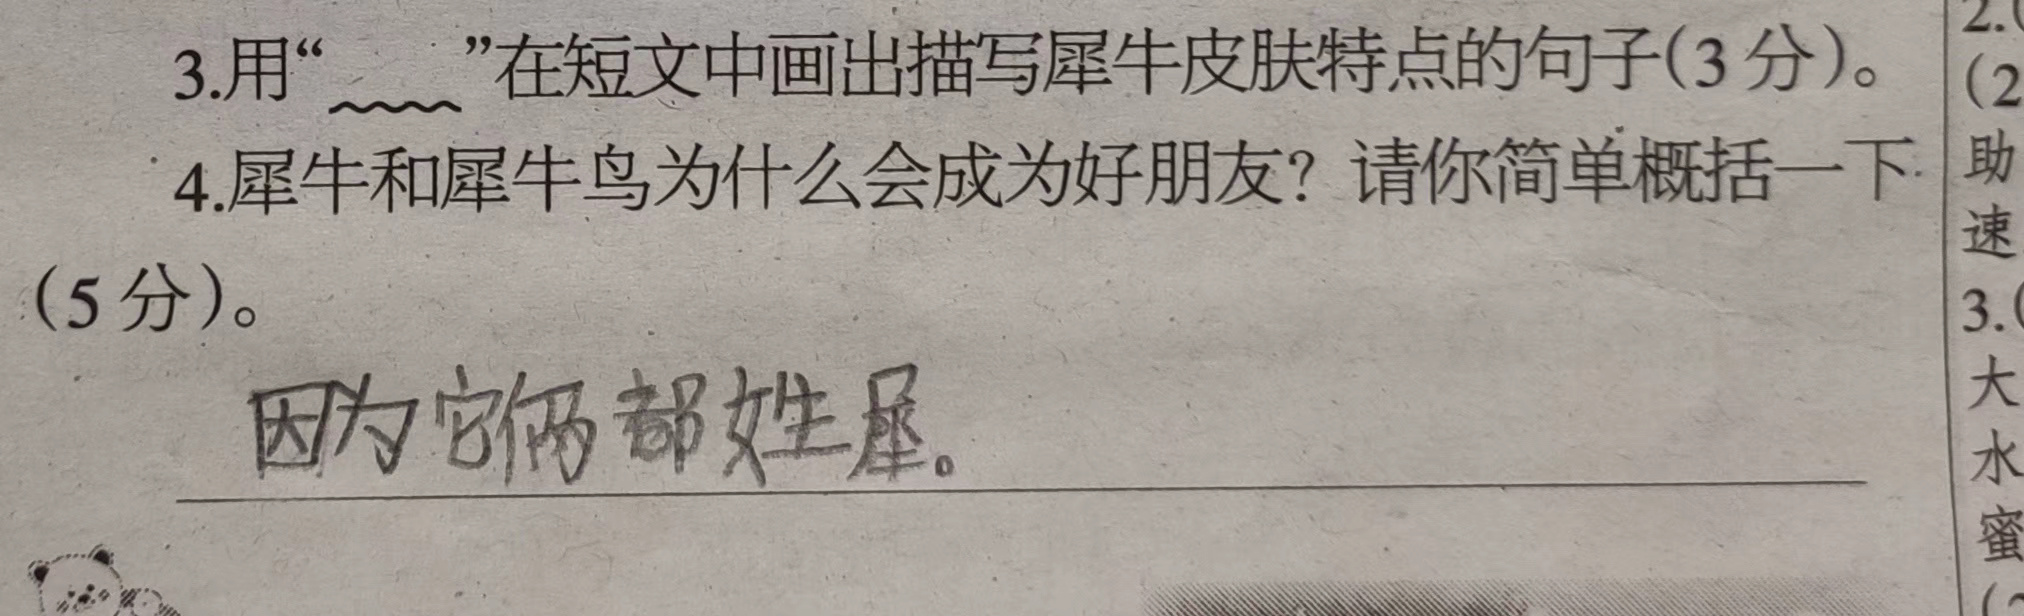 3.用“﹏﹏”在短文中画出描写犀牛皮肤特点的句子(3分)。
4.犀牛和犀牛鸟为什么会成为好朋友？请你简单概括一下
(5分)。
因为它俩都姓犀。
2.(
(2
助
速
3.(
大
水
蜜